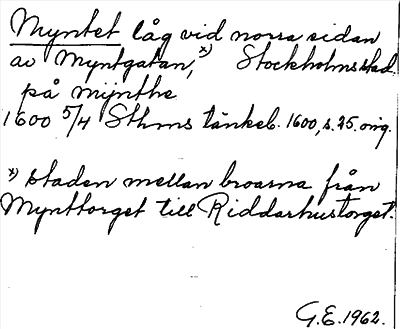 Myntet låg vid norra sidan
av Myntgatan, x) Stockholms stad.
på mijnthe
1600 5/4 Sthms tänkeb. 1600, s. 25. orig.
x) staden mellan broarna från
Mynttorget till Riddarhustorget.
G.E. 1962.